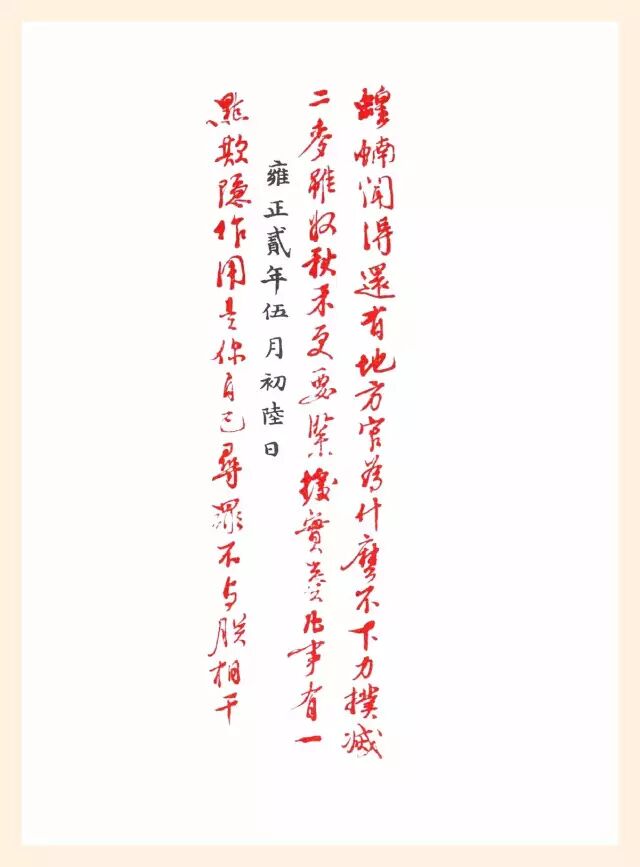 蝗蝻闻得還有地方官為什麼不下力撲滅
二麥雖收秋禾更要緊據實奏凡事有一
雍正貳年伍月初陸日
點欺隱作用是你自己尋罪不与朕相干